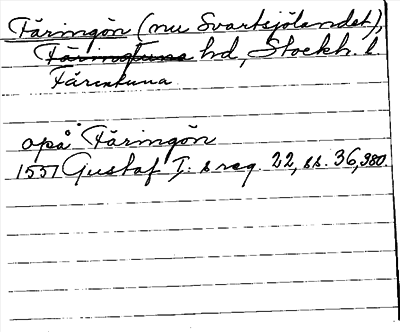 Färingön (nu Svartsjölandet),
Färingtuna hd, Stockh. l.
Färentuna
opå Färingön
1557 Gustaf I: s reg. 22, ss. 36, 380.